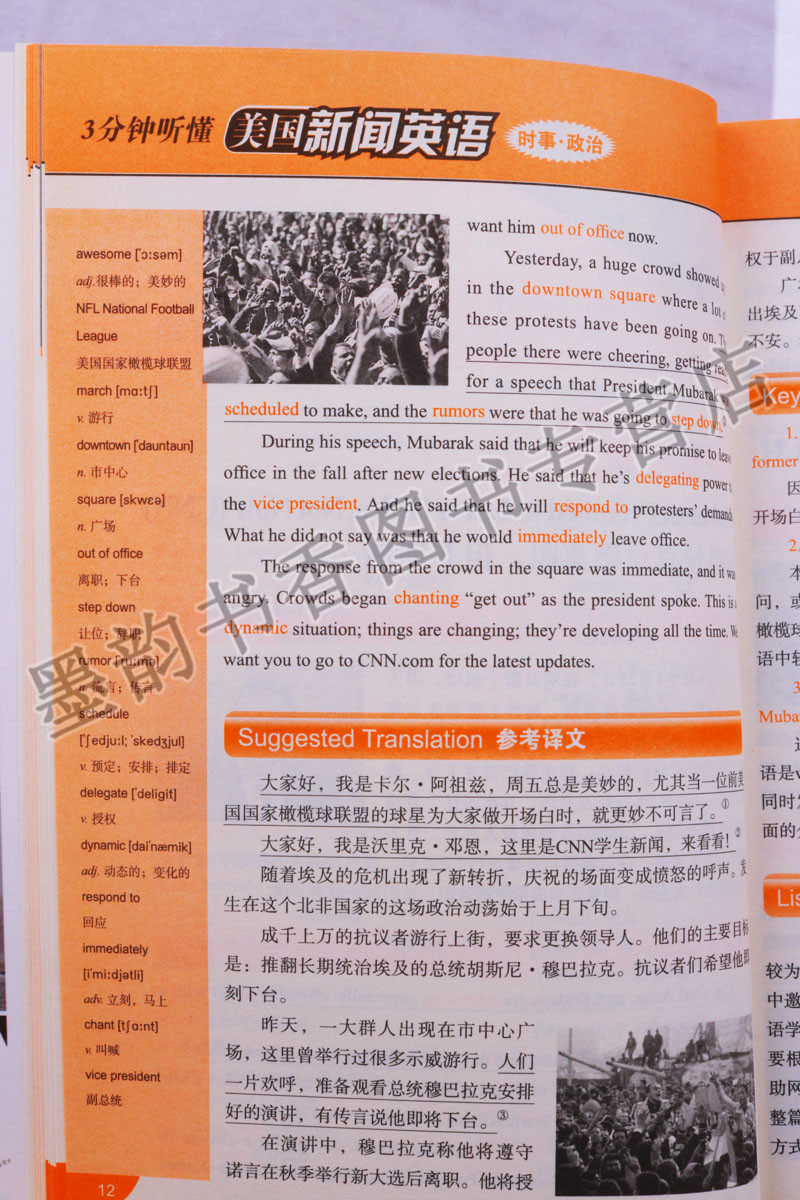 3分钟听懂 美国新闻英语 时事·政治
awesome ['ɔ:səm]
adj.很棒的；美妙的
NFL National Football
League
美国国家橄榄球联盟
march [mɑ:tʃ]
v. 游行
downtown ['dauntaun]
n. 市中心
square [skwɛə]
n. 广场
out of office
离职；下台
step down
让位；辞职
rumor ['ru:mə]
n. 流言；传言
schedule
['ʃedju:l; 'skedʒjul]
v. 预定；安排；排定
delegate ['deligit]
v. 授权
dynamic [dai'næmik]
adj. 动态的；变化的
respond to
回应
immediately
[i'mi:djətli]
adv. 立刻，马上
chant [tʃɑ:nt]
v. 叫喊
vice president
副总统
12
want him out of office now.
Yesterday, a huge crowd showed
in the downtown square where a lot
these protests have been going on.
people there were cheering, getting
for a speech that President Mubarak
scheduled to make, and the rumors were that he was going to step down.
During his speech, Mubarak said that he will keep his promise to
office in the fall after new elections. He said that he's delegating power
the vice president. And he said that he will respond to protesters' demands
What he did not say was that he would immediately leave office.
The response from the crowd in the square was immediate, and it was
angry. Crowds began chanting “get out” as the president spoke. This is a
dynamic situation; things are changing; they're developing all the time. We
want you to go to CNN.com for the latest updates.
Suggested Translation 参考译文
大家好，我是卡尔·阿祖兹，周五总是美妙的，尤其当一位前美
国国家橄榄球联盟的球星为大家做开场白时，就更妙不可言了。①
大家好，我是沃里克·邓恩，这里是CNN学生新闻，来看看！②
随着埃及的危机出现了新转折，庆祝的场面变成愤怒的呼声。发
生在这个北非国家的这场政治动荡始于上月下旬。
成千上万的抗议者游行上街，要求更换领导人。他们的主要目标
是：推翻长期统治埃及的总统胡斯尼·穆巴拉克。抗议者们希望他即
刻下台。
昨天，一大群人出现在市中心广
场，这里曾举行过很多示威游行。人们
一片欢呼，准备观看总统穆巴拉克安排
好的演讲，有传言说他即将下台。③
在演讲中，穆巴拉克称他将遵守
诺言在秋季举行新大选后离职。他将授
权于副
广
出埃及
不安。
Key
1.
former
因
开场白
2.
本
问，或
橄榄球
语中较
3
Mubar
语是v
同时发
面的
Lis
较为
中邀
语学
要根
助网
整篇
方式
墨韵书香图书专营店